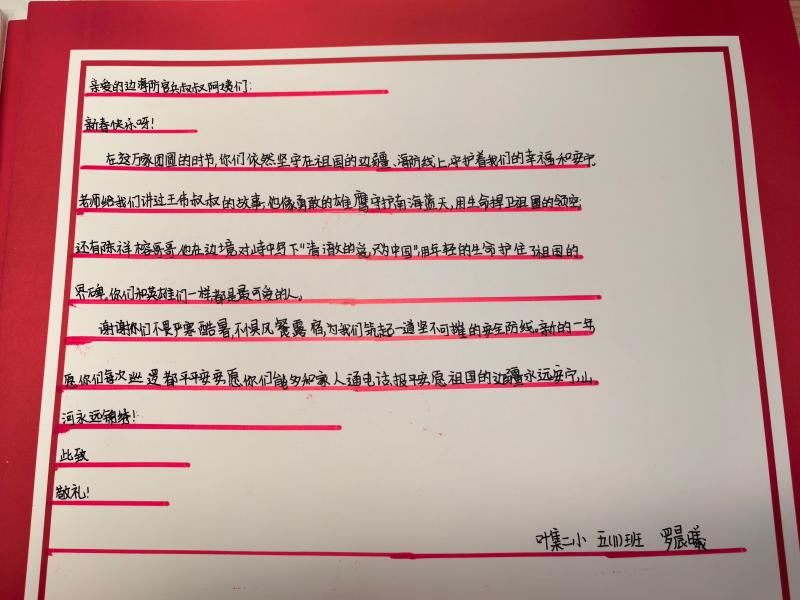 亲爱的边海防官兵叔叔阿姨们:
新春快乐呀!
在这万家团圆的时节,你们依然坚守在祖国的边疆、海防线上,守护着我们的幸福和安宁。
老师给我们讲过王伟叔叔的故事,他像勇敢的雄鹰守护南海蓝天,用生命捍卫祖国的领空;
还有陈祥榕哥哥,他在边境对峙中写下“清澈的爱,只为中国”,用年轻的生命护住了祖国的
界碑。你们和英雄们一样,都是最可爱的人。
谢谢你们不畏严寒酷暑,不惧风餐露宿,为我们筑起一道坚不可摧的安全防线。新的一年
愿你们每次巡逻都平平安安,愿你们能多和家人通电话报平安,愿祖国的边疆永远安宁,山
河永远锦绣!
此致
敬礼!
叶集二小 五(11)班 罗晨曦